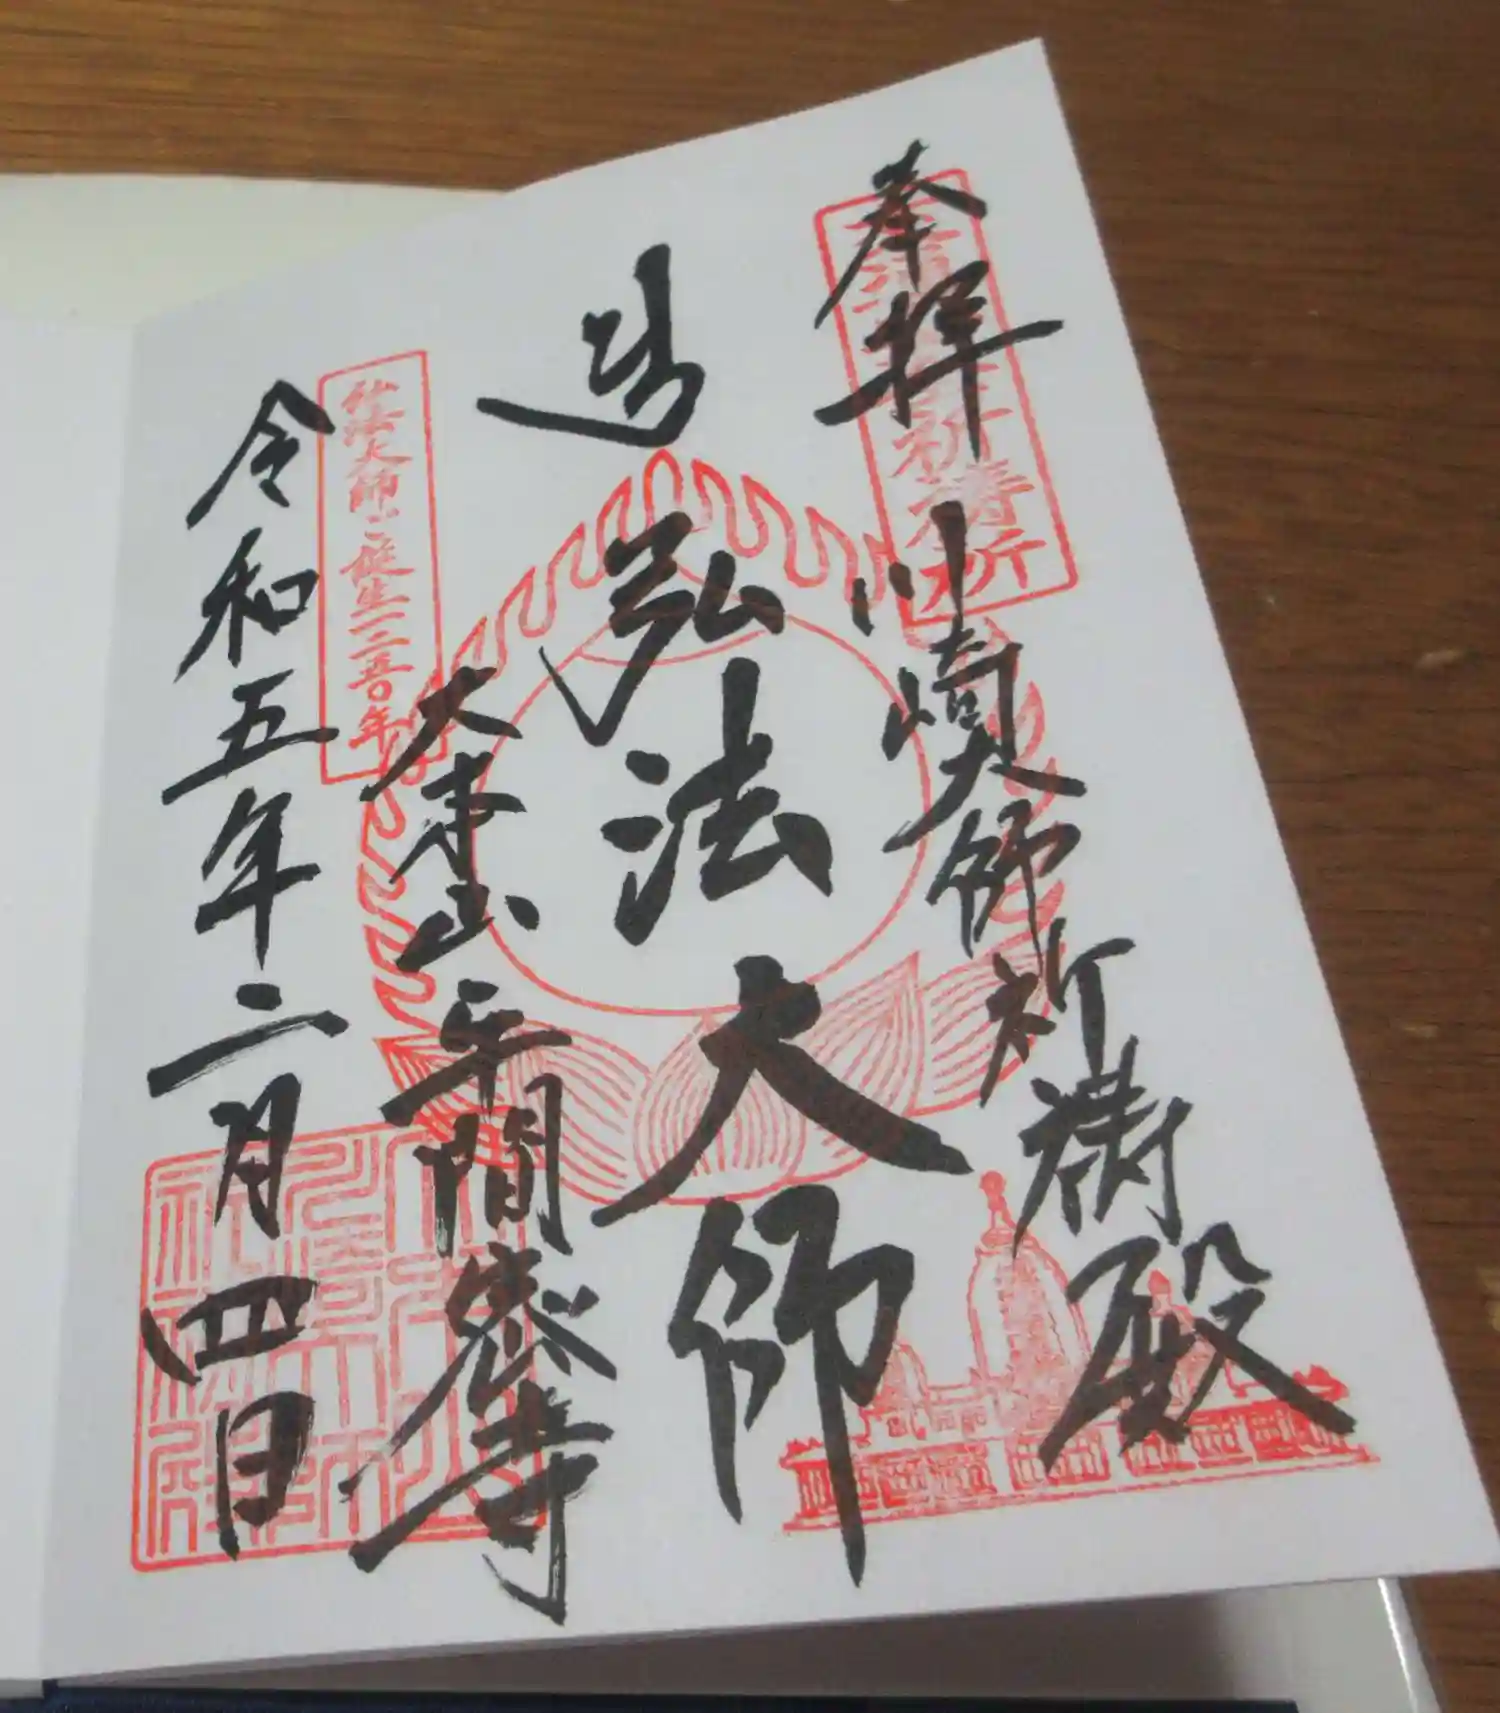 奉拝
川崎大師祈祷殿
弘法大師
大本山平間寺
弘法大師ご誕生一二五〇年
令和五年二月四日